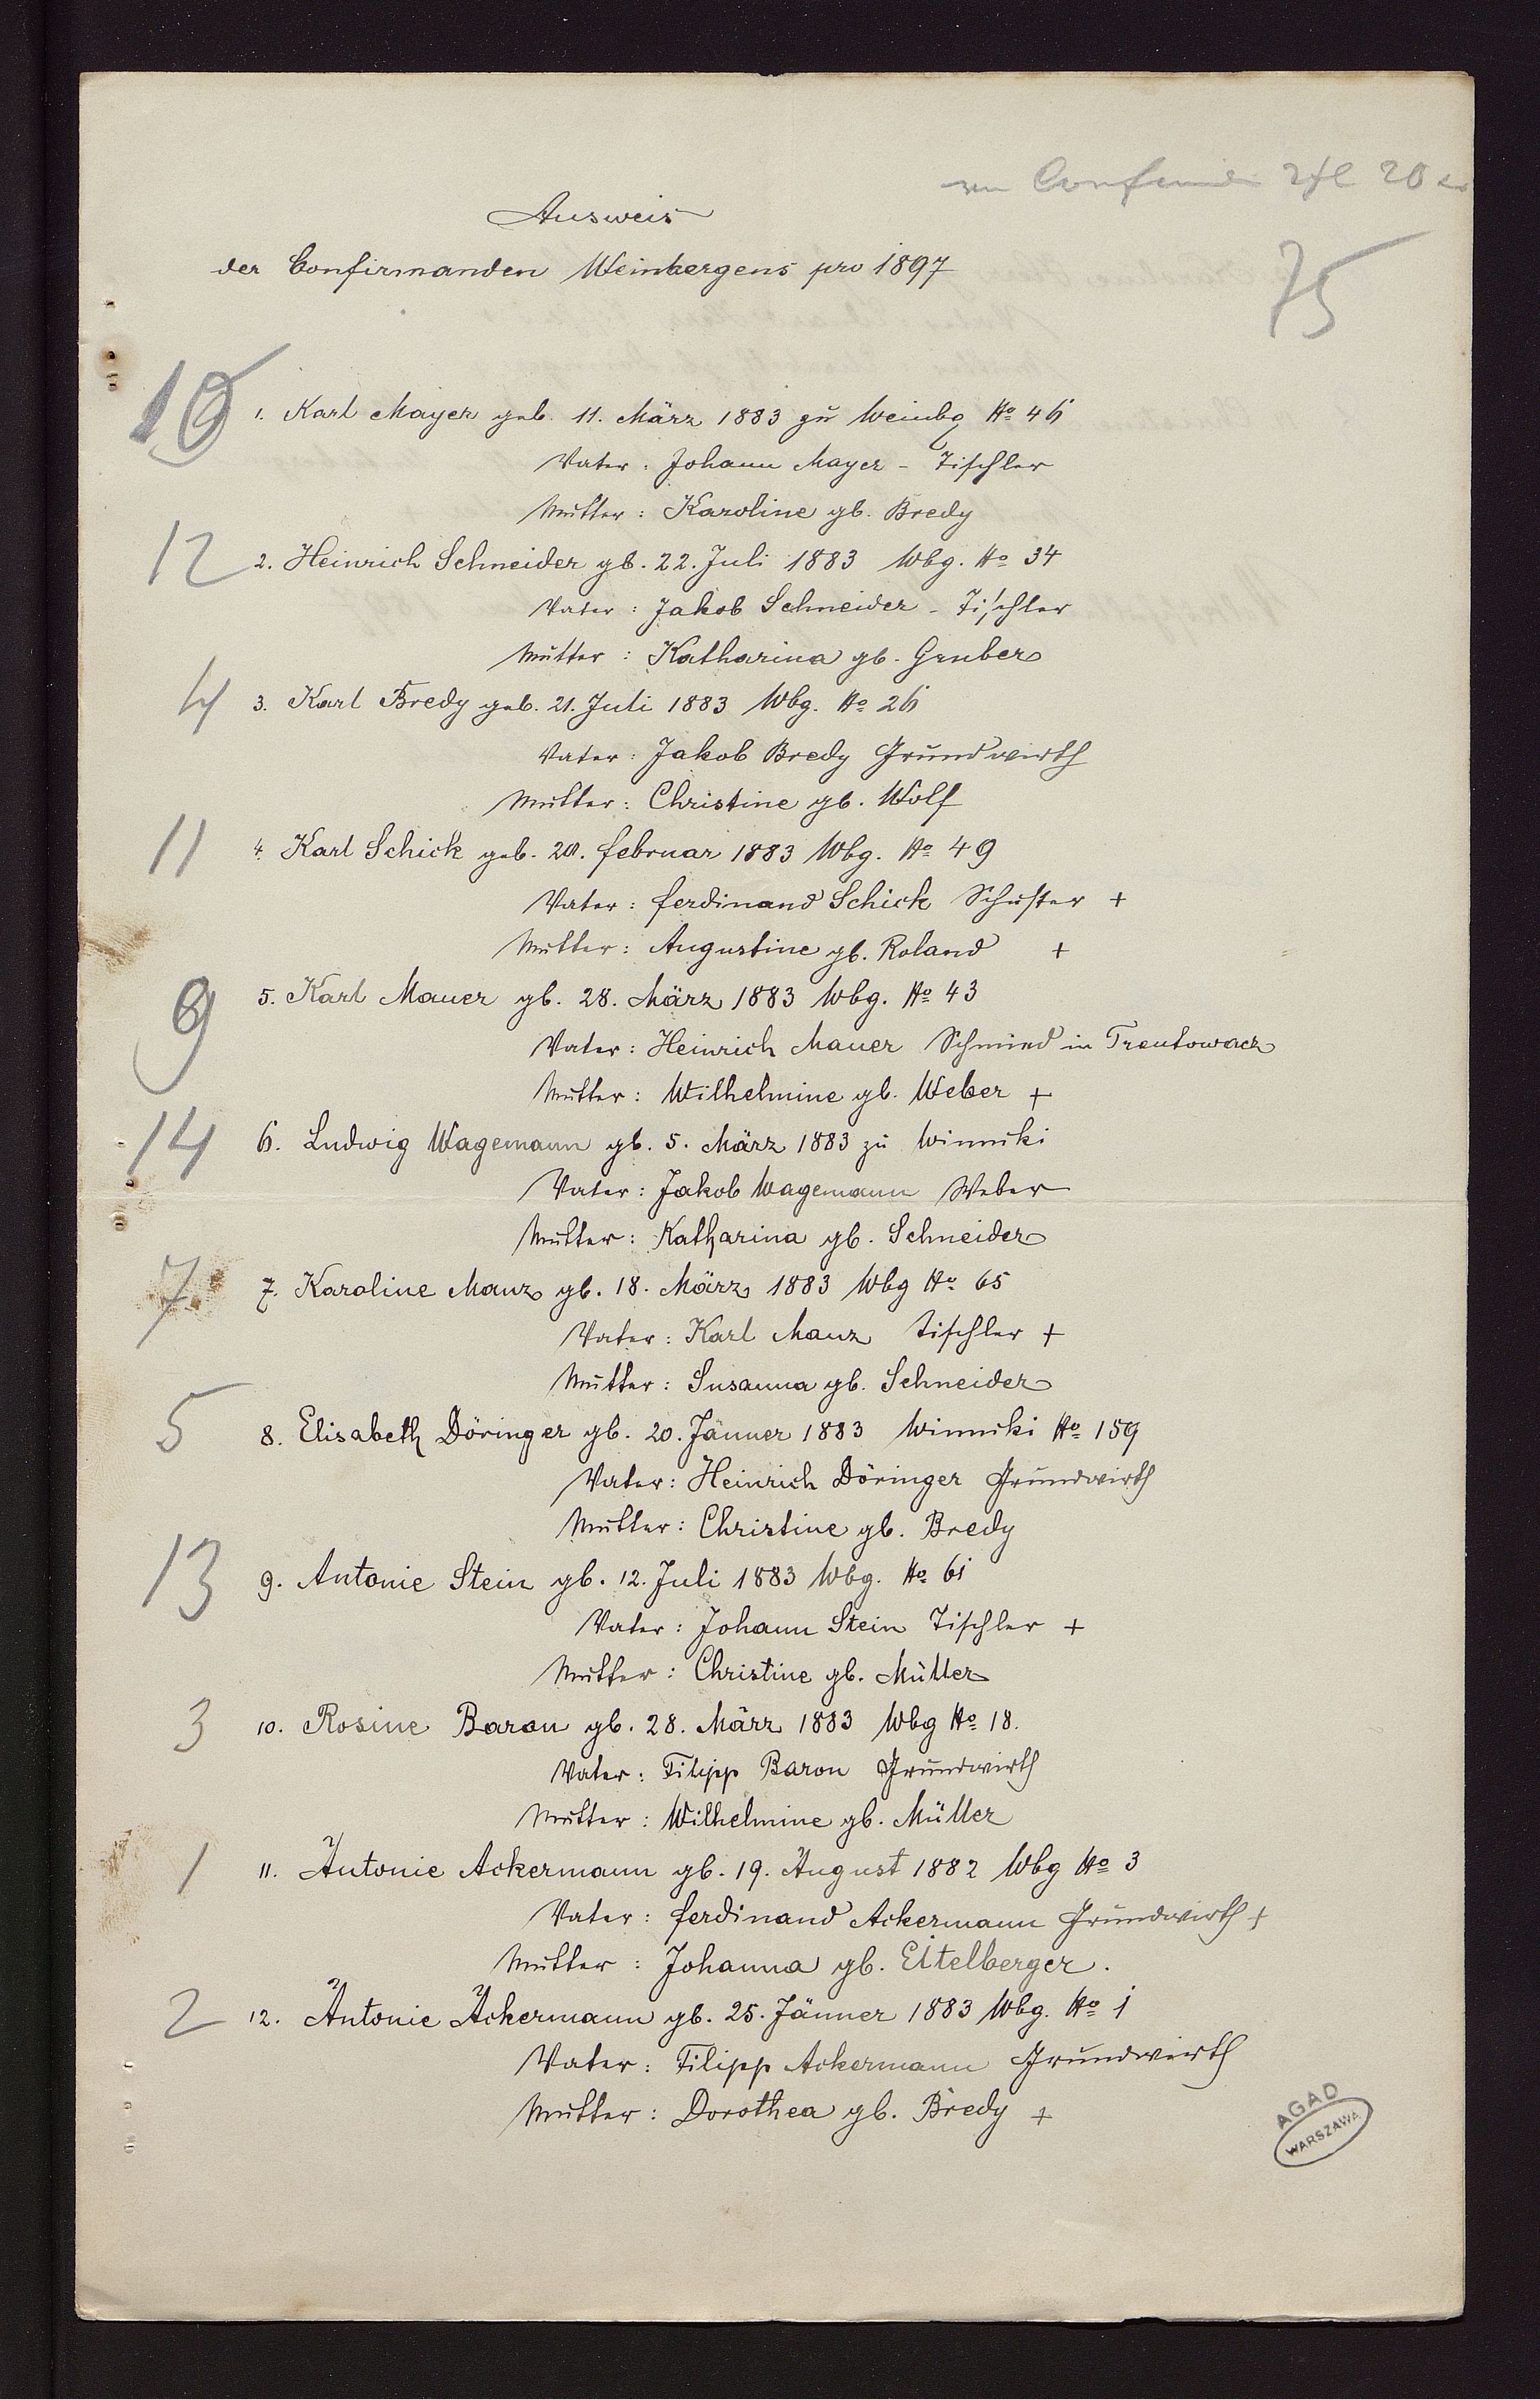 2 fl 20 kr
Ausweis
der Confirmanden Weinbergens pro 1897
75
10 1. Karl Mayer geb. 11. März 1883 zu Weinbg No 46
Vater: Johann Mayer - Tischler
Mutter: Karoline gb. Bredy
12 2. Heinrich Schneider gb. 22. Juli 1883 Wbg. No 34
Vater: Jakob Schneider - Tischler
Mutter: Katharina gb. Gruber
4 3. Karl Bredy geb. 21. Juli 1883 Wbg. No 26
Vater: Jakob Bredy Grundwirth
Mutter: Christine gb. Wolf
11 4. Karl Schick geb. Februar 1883 Wbg. No 49
Vater: Ferdinand Schick Schuster +
Mutter: Augustine gb. Roland +
9 5. Karl Mauer gb. 28. März 1883 Wbg. No 43
Vater: Heinrich Mauer Schmied in
Mutter: Wilhelmine gb. Weber +
14 6. Ludwig Wagemann gb. 5. März 1883 zu Winniki
Vater: Jakob Wagemann Weber
Mutter: Katharina gb. Schneider
7 7. Karoline Manz gb. 18. März 1883 Wbg No 65
Vater: Karl Manz Tischler +
Mutter: Susanna gb. Schneider
5 8. Elisabeth Döringer gb. 20. Jänner 1883 Winniki No 159
Vater: Heinrich Döringer Grundwirth
Mutter: Christine gb. Bredy
13 9. Antonie Stein gb. 12. Juli 1883 Wbg. No 61
Vater: Johann Stein Tischler +
Mutter: Christine gb. Müller
3 10. Rosine Baron gb. 28. März 1883 Wbg No 18.
Vater: Filipp Baron Grundwirth
Mutter: Wilhelmine gb. Müller
1 11. Antonie Ackermann gb. 19. August 1882 Wbg No 3
Vater: Ferdinand Ackermann Grundwirth +
Mutter: Johanna gb. Eitelberger.
2 12. Antonie Ackermann gb. 25. Jänner 1883 Wbg. No 1
Vater: Filipp Ackermann Grundwirth
Mutter: Dorothea gb. Bredy +
AGAD
WARSZAWA